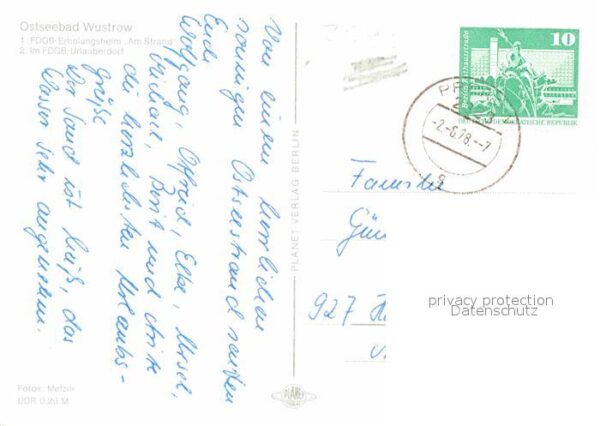 Ostseebad Wustrow
1. FDGB-Erholungsheim „Am Strand"
2. Im FDGB-Urlauberdorf
Von einem herrlichen
sonnigen Ostseestrand senden
Euch
Wolfgang, Otfried, Elke, Ursel,
Michael, Berit und Antke
die herzlichsten Urlaubs-
grüße
Der Sand ist heiß, das
Wasser sehr angenehm.
Fotos: Metzner
DDR 0.20 M
PLANET-VERLAG BERLIN
PLANET
10
Berlin, Rathausstraße
DEUTSCHE DEMOKRATISCHE REPUBLIK
-2.-6.78.-7
a
Familie
Gün
927
privacy protection
Datenschutz